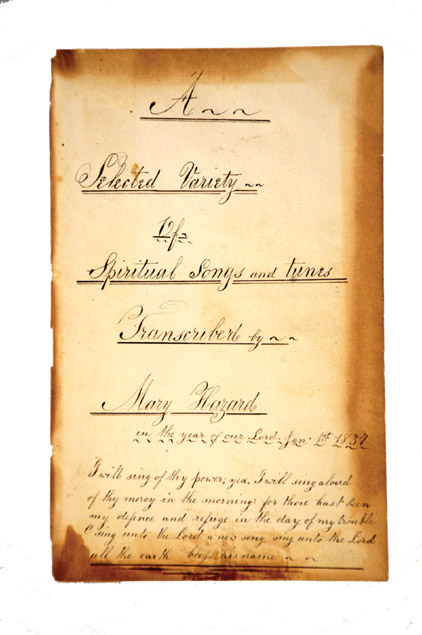 A ~ ~
Selected Variety ~~
Of ~
Spiritual Songs and tunes
Transcribed by ~ ~
Mary Hazard
in the year of our Lord. Jan. 1st 1837
I will sing of thy power; yea, I will sing aloud
of thy mercy in the morning: for thou hast been
my defence and refuge in the day of my trouble
O sing unto the Lord a new song sing unto the Lord
all the earth bless his name ~ ~